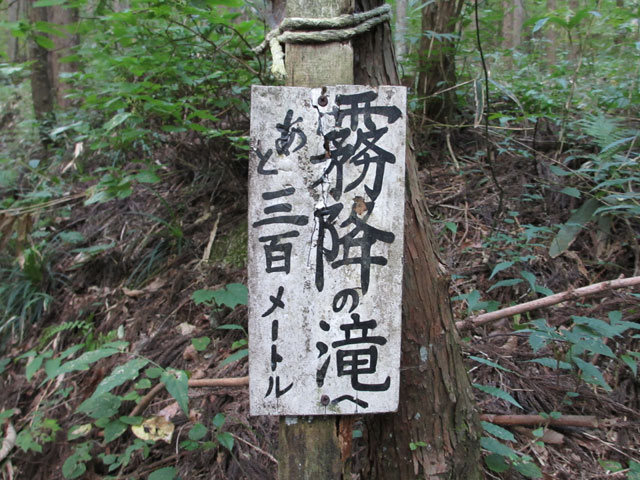 霧降の滝へ
あと三百メートル